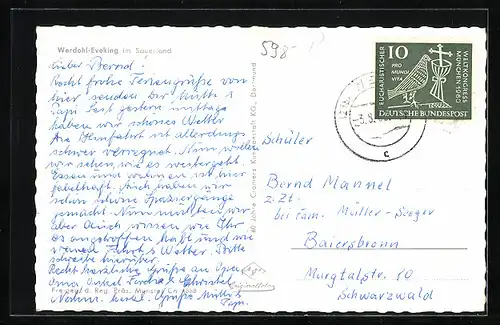 Werdohl-Eveking im Sauerland
598-
Lieber Bernd!
Recht frohe Feriengrüße von
hier senden Dir Mutti u.
Papi. Seit gestern mittags
haben wir schönes Wetter.
Die Hinfahrt ist allerdings
schwer verregnet. Nun wollen
wir sehen, wie es weitergeht.
Essen und wohnen ist hier
fabelhaft. Auch haben wir
schon schöne Spaziergänge
gemacht. Nun möchten wir
aber auch wissen wie Ihr
es angetroffen habt und wie
Fahrt u. Wetter. Bitte
schreibe hierüber.
Recht herzliche Grüße an Opa
Oma, Onkel
Grüße Mutti u.
Papi.
Freigeg. d. Reg. Präs. Münster
40 Jahre Cramers Kunstanstalt KG., Dortmund
Cramer
Originalfoto
10
EUCHARISTISCHER
WELTKONGRESS
MÜNCHEN 1960
PRO
MUNDI
VITA
DEUTSCHE BUNDESPOST
c
Schüler
Bernd Mannel
z.Zt.
bei Fam. Müller-Seeger
Baiersbronn
Murgtalstr. 10
Schwarzwald